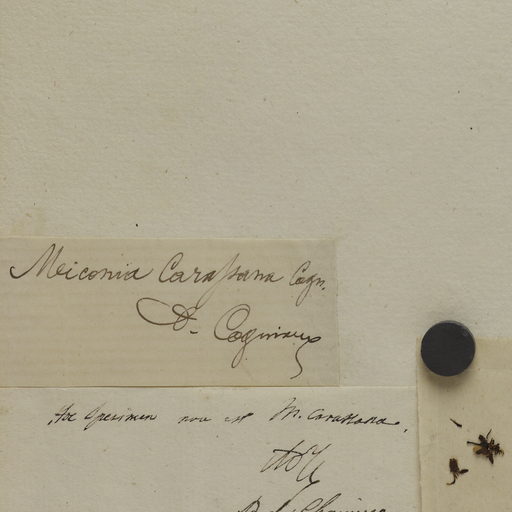 Miconia Carassana Cogn.
A. Cogniaux
Hoc Specimen non est M. Carassana.